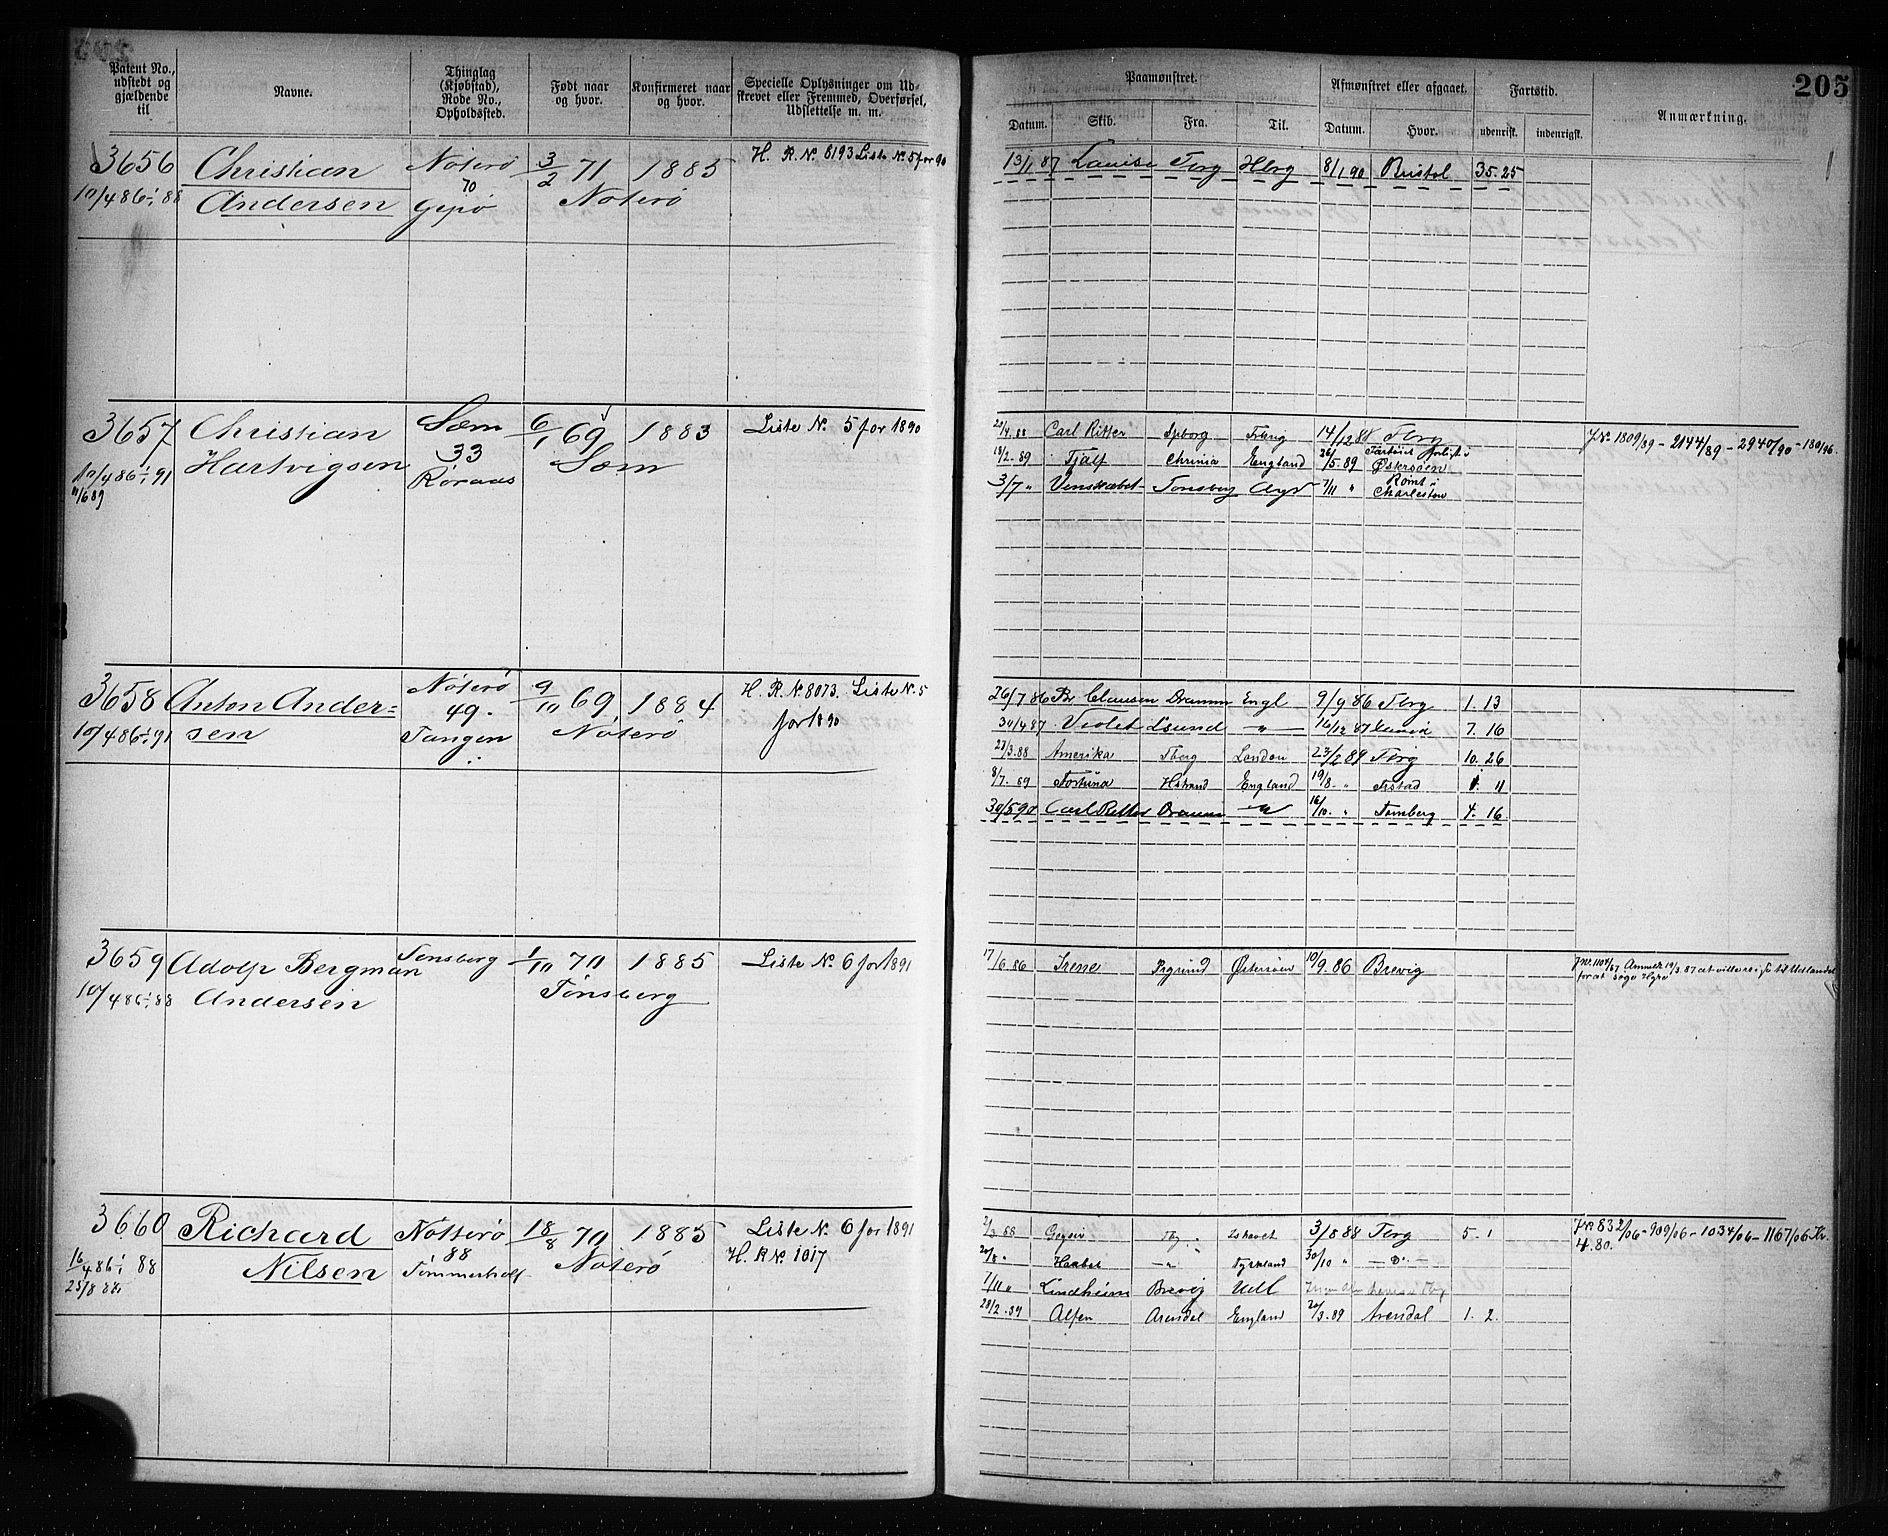 205
Patent No., udstedt og gjældende til
Navne.
Thinglag (Kjøbstad), Rode No., Opholdssted.
Født naar og hvor.
Konfirmeret naar og hvor.
Specielle Oplysninger om Udskrevet eller Fremmed, Overførsel, Udslettelse m. m.
Paamønstret.
Afmønstret eller afgaaet.
Fartstid.
Anmærkning.
Datum. Skib. Fra. Til. Datum. Hvor. udenrist. indenrigst.
3656 Christian Nøterø 3/2 71 1885 H. R. No. 8193 Liste No. 5 for 90
10/4 86 ÷ 88 Andersen 70 Nøterø
Gipø
13/1 87 Louise Tbrg Hbrg 8/1 90 Bristol 35. 25
3657 Christian Sæm 6/1 69 1883 Liste No. 5 for 1890
10/4 86 ÷ 91 Hartvigsen 33 Sæm
11/6 89 Røraas
21/4. 88 Carl Ritter Spborg 14/12 88 Tbrg J.No. 1809/89 - 2144/89 - 2940/90 - 180/96.
18/2. 89 Tjalf Chrinia England 26/5. 89 Østersøen
3/7 " Venskabet Tønsberg 7/11 " Rømt i Charleston
3658 Anton Ander= Nøterø 9/10 69 1884 H. R. No. 8073. Liste No. 5
10/4 86 ÷ 91 sen 49. Nøterø for 1890
Tangen
26/7 86 Br. Clausen Dramm Engl 9/9 86 Tbrg 1. 13
30/4 87 Violet Lsund — " — 16/12 87 7. 16
23/3. 88 Amerika Tberg London 23/2 89 Tbrg 10. 26
8/7. 89 Fortuna Hstrand England 19/8. " Frstad 1. 11
30/5 90 Carl Ritter Dramm — " — 16/10. " Tønsberg 4. 16
3659 Adolf Bergman Tønsberg 1/10 70 1885 Liste No. 6 for 1891
10/4 86 ÷ 88 Andersen Tønsberg
17/6. 86 Irene Prgrund Østersøen 10/9. 86 Brevig J.No. 1104/87 Anmeldt 19/3. 87 at ville reise til Udlandet
for at søge Hyre
3660 Richard Nøtterø 18/8 70 1885 Liste No. 6 for 1891
16/4 86 ÷ 88 Nilsen 88 Nøterø H. R No. 1017
25/8 88 Tømmerholt
2/3. 88 Geysir Tbg. Ishavet 3/8 88 Tbrg 5. 1 J.No. 832/06 - 909/06 - 1034/06 - 1167/06 Kr.
4.80.
20/8 " Haabet — " — Tyskland 30/10 " — D° —
7/11 " Lindheim Brevig Udl
28/2. 89 Alfen Arendal England 20/3. 89 Arendal 1. 2.